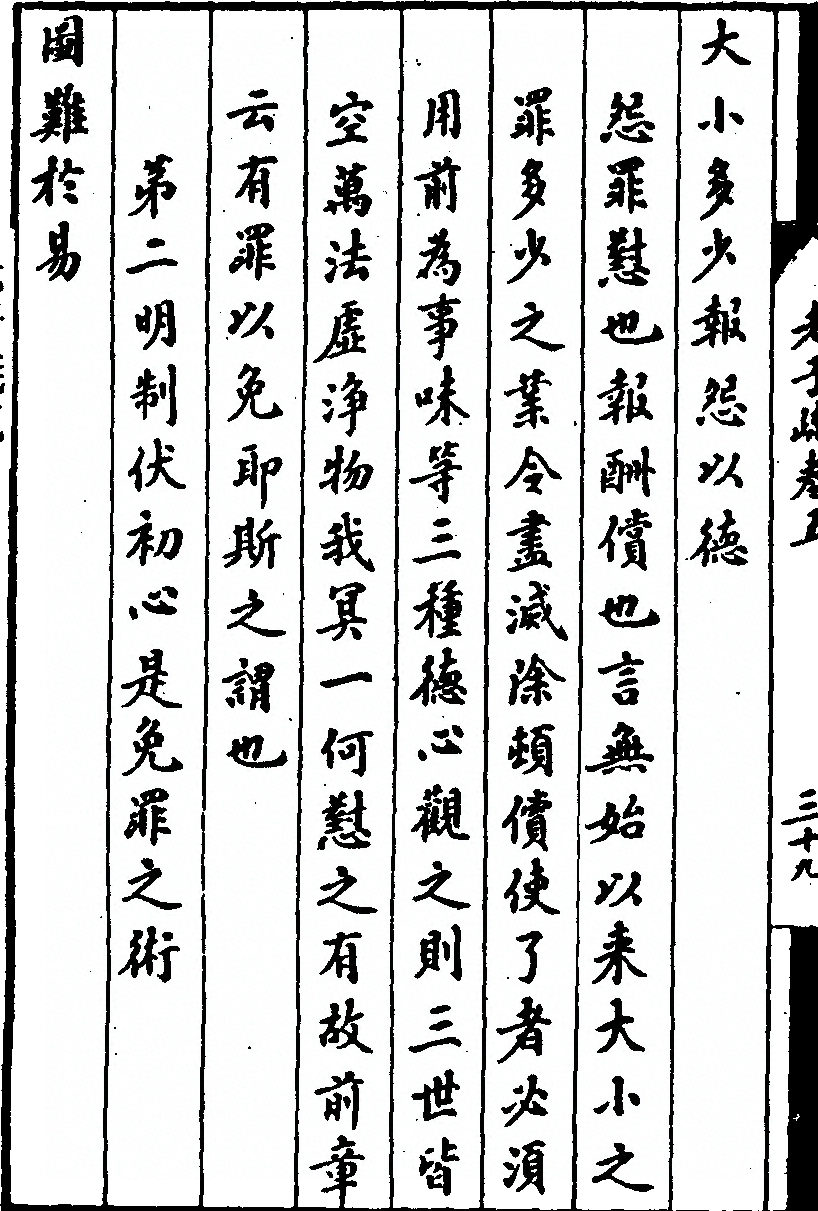 老子疏卷五
三十九
大小多少報怨以德
怨罪懟也報酬償也言無始以来大小之
罪多少之業令盡滅除頓償使了者必須
用前為事味等三種德心觀之則三世皆
空萬法虛淨物我冥一何懟之有故前章
云有罪以免耶斯之謂也
第二明制伏初心是免罪之術
圖難於易